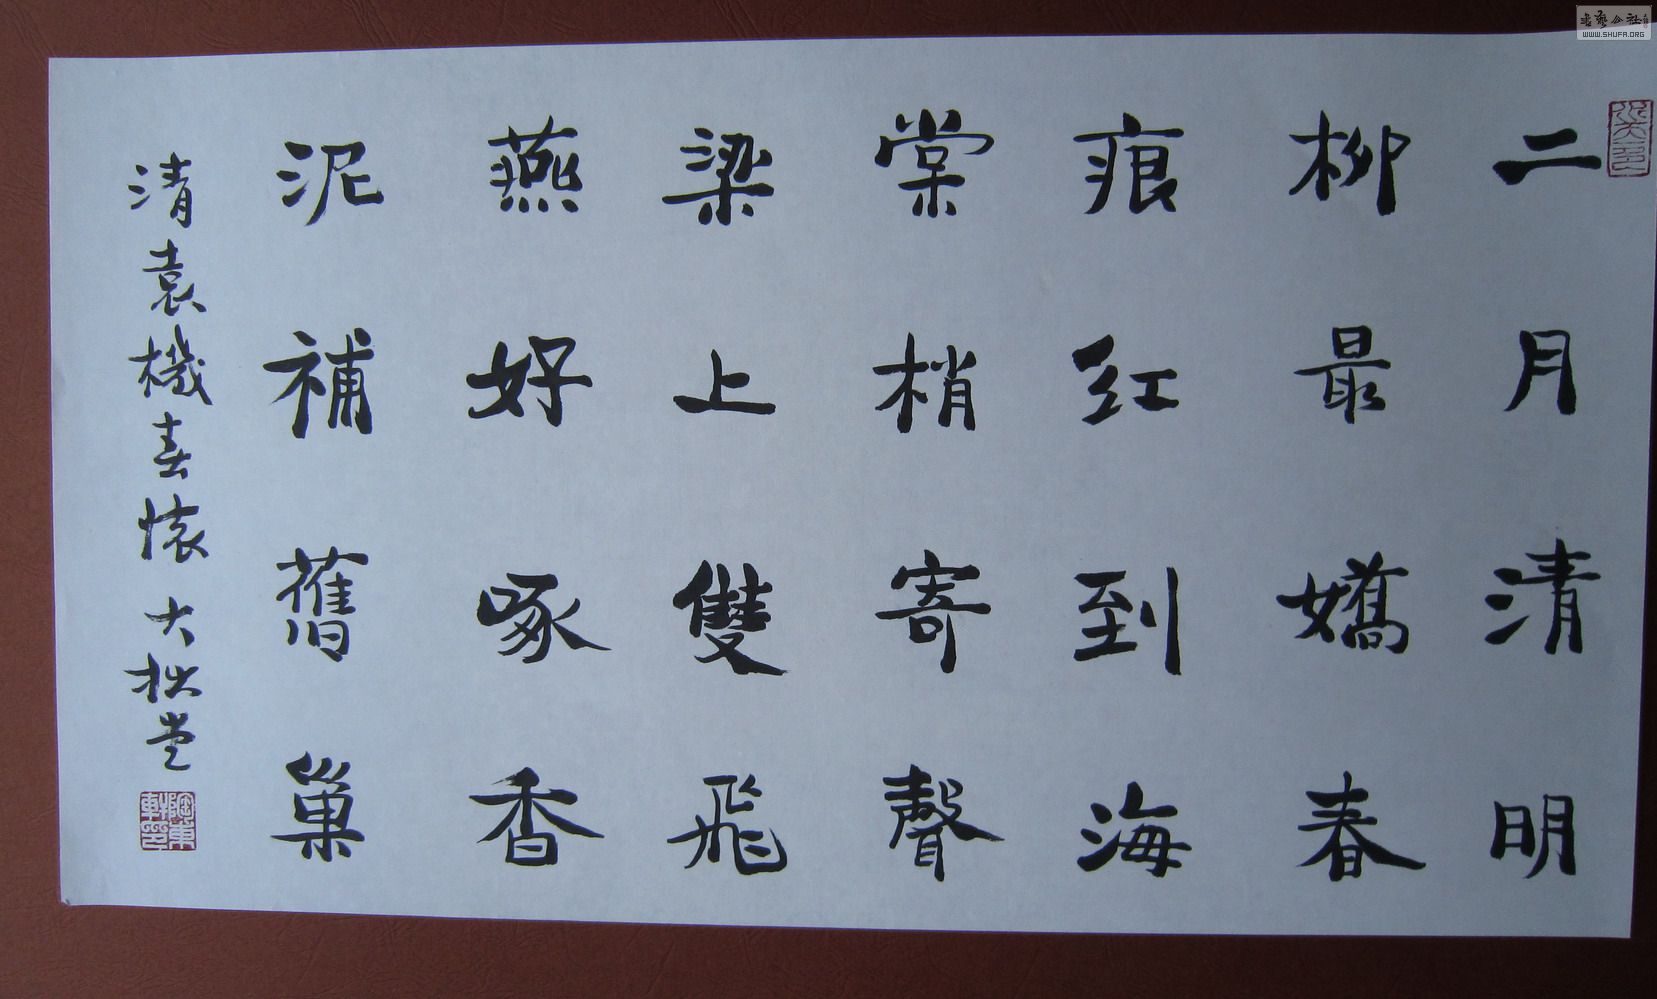 二月清明
柳最嬌春
痕紅到海
棠梢寄聲
梁上雙飛
燕好啄香
泥補舊巢
清袁機春懷 大拙堂
WWW.SHUFA.ORG